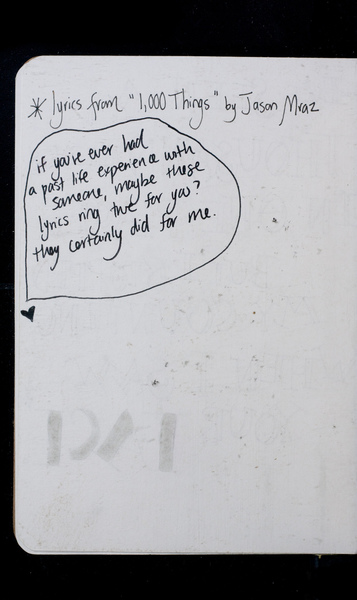 * lyrics from "1,000 Things" by Jason Mraz
if you've ever had
a past life experience with
someone, maybe these
lyrics ring true for you?
they certainly did for me.